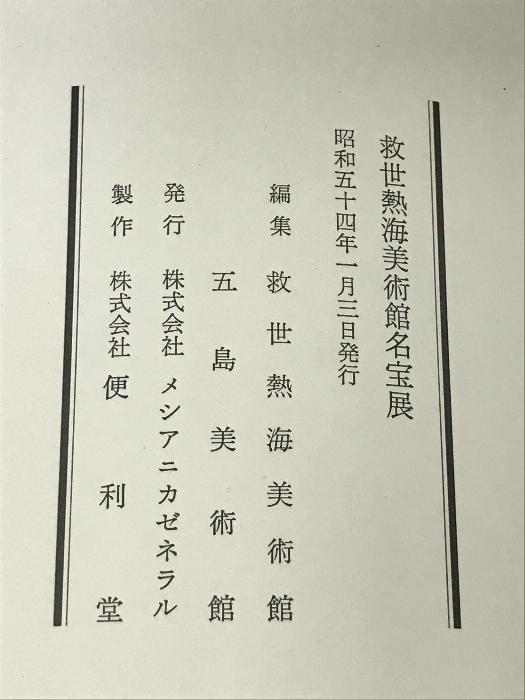 救世熱海美術館名宝展
昭和五十四年一月三日発行
編集 救世熱海美術館
五島美術館
発行 株式会社 メシアニカゼネラル
製作 株式会社 便利堂